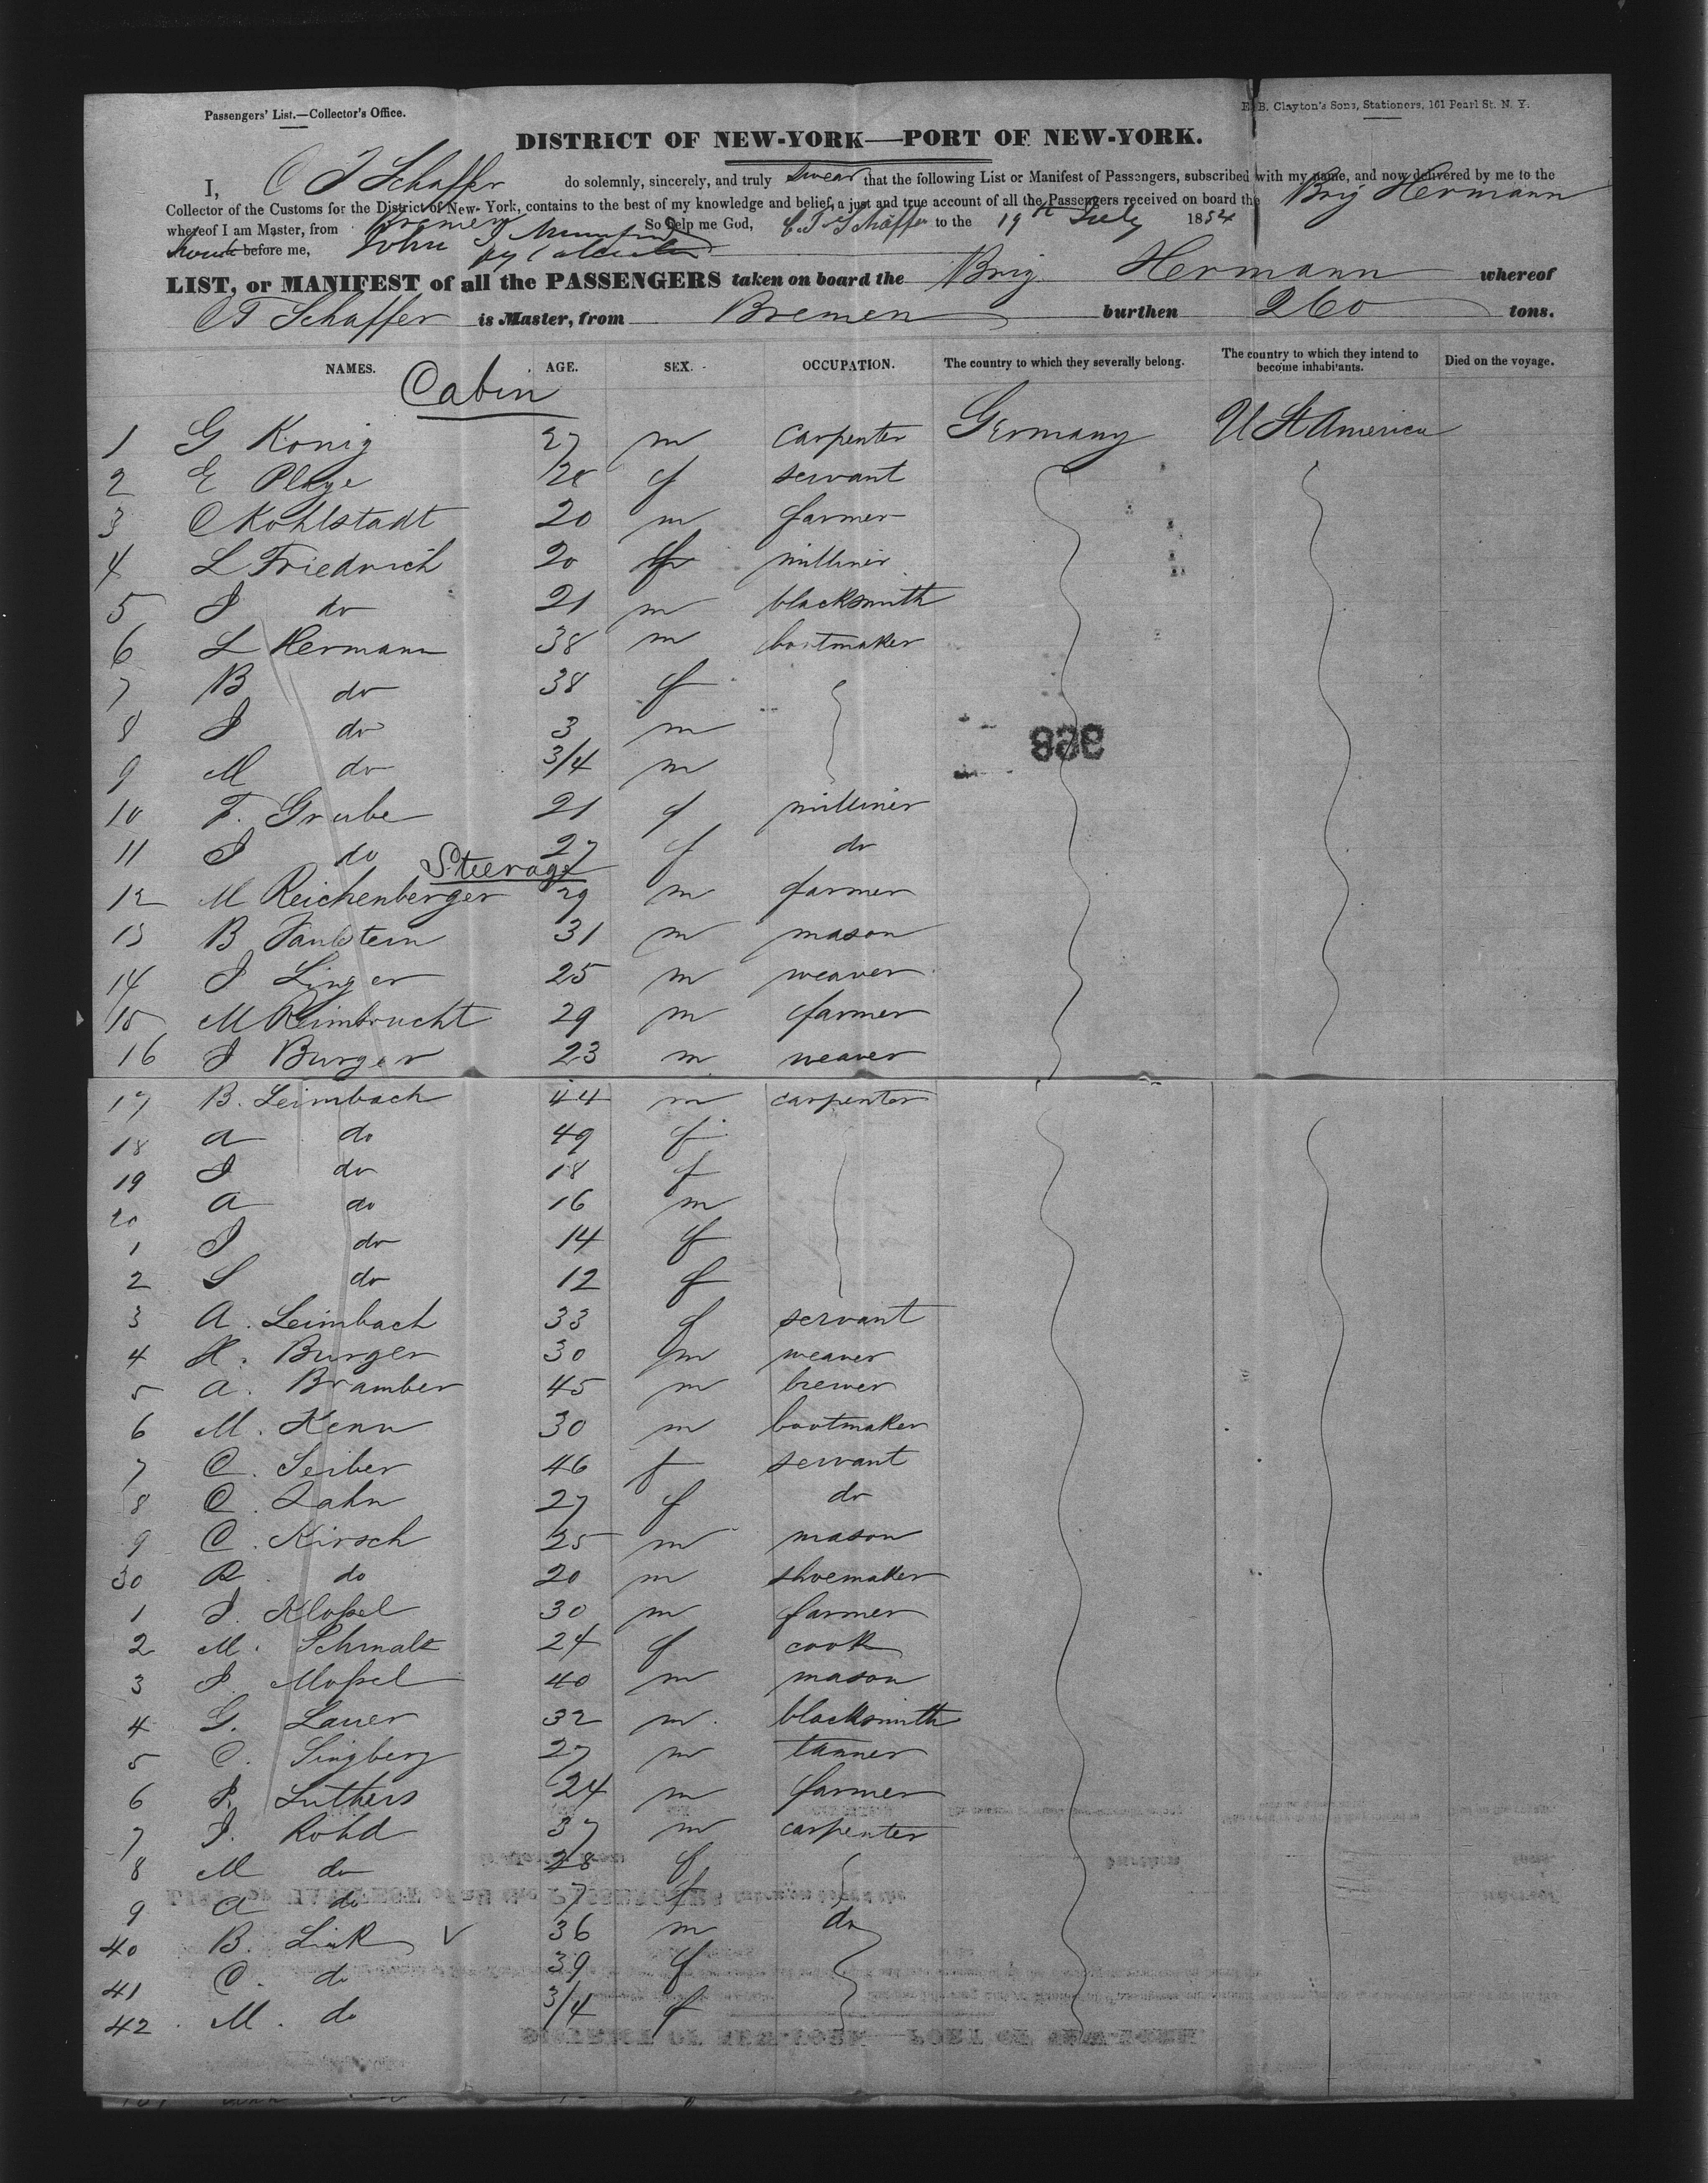 Passengers' List.—Collector's Office.
E. B. Clayton's Sons, Stationers, 161 Pearl St. N. Y.
DISTRICT OF NEW-YORK—PORT OF NEW-YORK.
I, C T Schaffer do solemnly, sincerely, and truly swear that the following List or Manifest of Passengers, subscribed with my name, and now delivered by me to the
Collector of the Customs for the District of New-York, contains to the best of my knowledge and belief, a just and true account of all the Passengers received on board the Brig Hermann
whereof I am Master, from Bremen So help me God, C. T. Schaffer to the 19th July 1854
before me, John
LIST, or MANIFEST of all the PASSENGERS taken on board the Brig Hermann whereof
C T Schaffer is Master, from Bremen burthen 260 tons.
NAMES. AGE. SEX. OCCUPATION. The country to which they severally belong. The country to which they intend to become inhabitants. Died on the voyage.
Cabin
1 G Konig 27 m carpenter Germany U St America
2 E Plage 28 f servant
3 C Kohlstadt 20 m farmer
4 L Friedrich 20 f milliner
5 J do 21 m blacksmith
6 L Hermann 38 m bootmaker
7 B do 38 f
8 J do 3 m
9 M do 3/4 m
868
10 F. Grube 21 f milliner
11 J do 27 f do
Steerage
12 M Reichenberger 29 m farmer
13 B 31 m mason
14 J Linger 25 m weaver
15 M Reimbrucht 29 m farmer
16 J Burger 23 m weaver
17 B. Leimbach 44 m carpenter
18 A do 49 f
19 J do 18 f
20 A do 16 m
1 J do 14 f
2 S do 12 f
3 A. Leimbach 33 f servant
4 K. Burger 30 m weaver
5 A. Bramber 45 m brewer
6 M. Kenn 30 m bootmaker
7 C. Seiber 46 f servant
8 C. Zahn 27 f do
9 C. Kirsch 25 m mason
30 R do 20 m shoemaker
1 J. Kloßel 30 m farmer
2 M. Schmalz 24 f cook
3 J. Moßel 40 m mason
4 G. Lauer 32 m blacksmith
5 C. Singberg 27 m tanner
6 J. Luthers 24 m farmer
7 J. Rohd 37 m carpenter
8 M do 28 f
9 A do 7 f
40 B. Link 36 m do
41 C. do 39 f
42 M. do 3/4 f